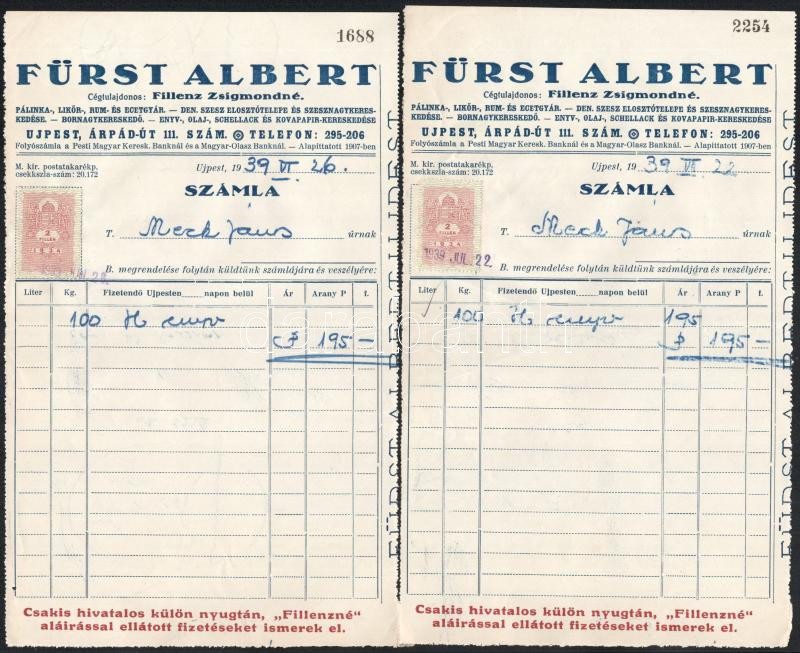 1688
FÜRST ALBERT
Cégtulajdonos: Fillenz Zsigmondné.
PÁLINKA-, LIKŐR-, RUM- ÉS ECETGYÁR. — DEN. SZESZ ELOSZTÓTELEPE ÉS SZESZNAGYKERES-
KEDÉSE. — BORNAGYKERESKEDŐ. — ENYV-, OLAJ-, SCHELLACK ÉS KOVAPAPIR-KERESKEDÉSE
UJPEST, ÁRPÁD-ÚT 111. SZÁM. ◎ TELEFON: 295-206
Folyószámla a Pesti Magyar Keresk. Banknál és a Magyar-Olasz Banknál. — Alapittatott 1907-ben
M. kir. postatakarékp.
csekkszla-szám: 20.172
Ujpest, 1939 VI 26.
SZÁMLA
2
FILLÉR
T. Meck János úrnak
B. megrendelése folytán küldtünk számlájára és veszélyére:
Liter Kg. Fizetendő Ujpesten napon belül Ár Arany P f.
100 H enyv
P 195 —
Csakis hivatalos külön nyugtán, „Fillenzné"
aláirással ellátott fizetéseket ismerek el.
FÜRST ALBERT UJPEST
2254
FÜRST ALBERT
Cégtulajdonos: Fillenz Zsigmondné.
PÁLINKA-, LIKŐR-, RUM- ÉS ECETGYÁR. — DEN. SZESZ ELOSZTÓTELEPE ÉS SZESZNAGYKERES-
KEDÉSE. — BORNAGYKERESKEDŐ. — ENYV-, OLAJ-, SCHELLACK ÉS KOVAPAPIR-KERESKEDÉSE
UJPEST, ÁRPÁD-ÚT 111. SZÁM. ◎ TELEFON: 295-206
Folyószámla a Pesti Magyar Keresk. Banknál és a Magyar-Olasz Banknál. — Alapittatott 1907-ben
M. kir. postatakarékp.
csekkszla-szám: 20.172
Ujpest, 1939 VII 22
SZÁMLA
2
FILLÉR
T. Meck János úrnak
1939 JUL 22.
B. megrendelése folytán küldtünk számlájára és veszélyére:
Liter Kg. Fizetendő Ujpesten napon belül Ár Arany P f.
100 H enyv 195
P 195 —
Csakis hivatalos külön nyugtán, „Fillenzné"
aláirással ellátott fizetéseket ismerek el.
FÜRST ALBERT UJPEST